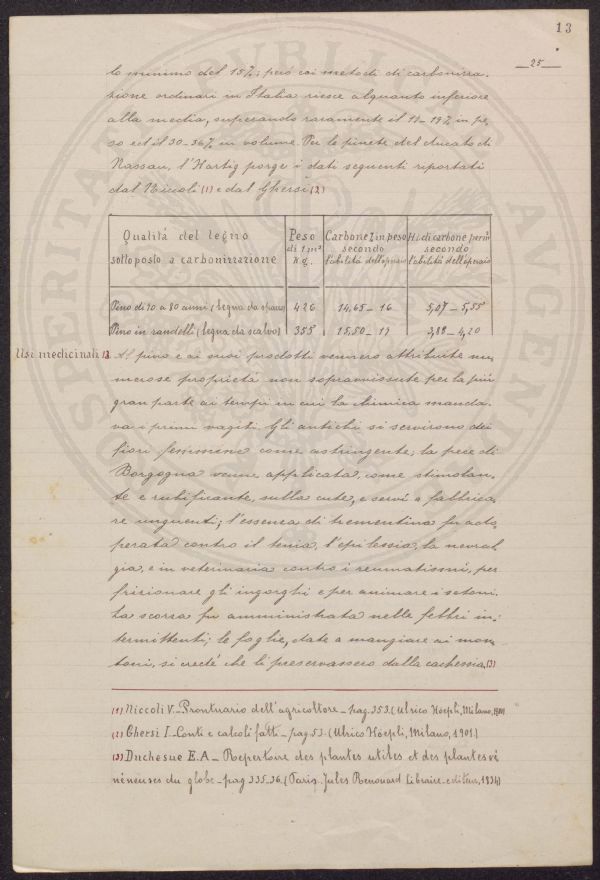 13
25
lo minimo del 15%; però coi metodi di carbonizza-
zione ordinari in Italia riesce alquanto inferiore
alla media, superando raramente il 17-19% in pe-
so ed il 30-36% in volume. Per le pinete del ducato di
Nassau, l'Hartig porge i dati seguenti riportati
dal Niccoli (1) e dal Ghersi (2)
Qualità del legno sottoposto a carbonizzazione | Peso di 1 m³ Kg. | Carbone % in peso secondo l'abilità dell'operaio | Hl. di carbone per m³ secondo l'abilità dell'operaio
Pino di 70 a 80 anni (legna da spacco) 426 14,65-16 5,07-5,55
Pino in randelli (legna da scalvo) 355 15,50-17 3,88-4,20
Usi medicinali 13. Al pino e ai suoi prodotti vennero attribuite nu-
merose proprietà non sopravvissute per la più
gran parte ai tempi in cui la chimica manda-
va i primi vagiti. Gli antichi si servirono dei
fiori femminei come astringente; la pece di
Borgogna venne applicata, come stimolan-
te e rubificante, sulla cute, e servì a fabbrica-
re unguenti; l'essenza di trementina fu ado-
perata contro il tenia, l'epilessia, la nevral-
gia, e in veterinaria contro i reumatismi, per
frizionare gli ingorghi e per animare i setoni.
La scorza fu amministrata nelle febbri in-
termittenti; le foglie, date a mangiare ai mon-
toni, si credé che li preservassero dalla cachessia (3)
(1) Niccoli V. - Prontuario dell'agricoltore - pag. 353. (Ulrico Hoepli, Milano,
(2) Ghersi I - Conti e calcoli fatti - pag 53. (Ulrico Hoepli, Milano, 1901.)
(3) Duchesne E.A - Repertoire des plantes utiles et des plantes vé
néneuses du globe - pag 335-36. (Paris. Jules Renouard libraire-editeur, 1836)